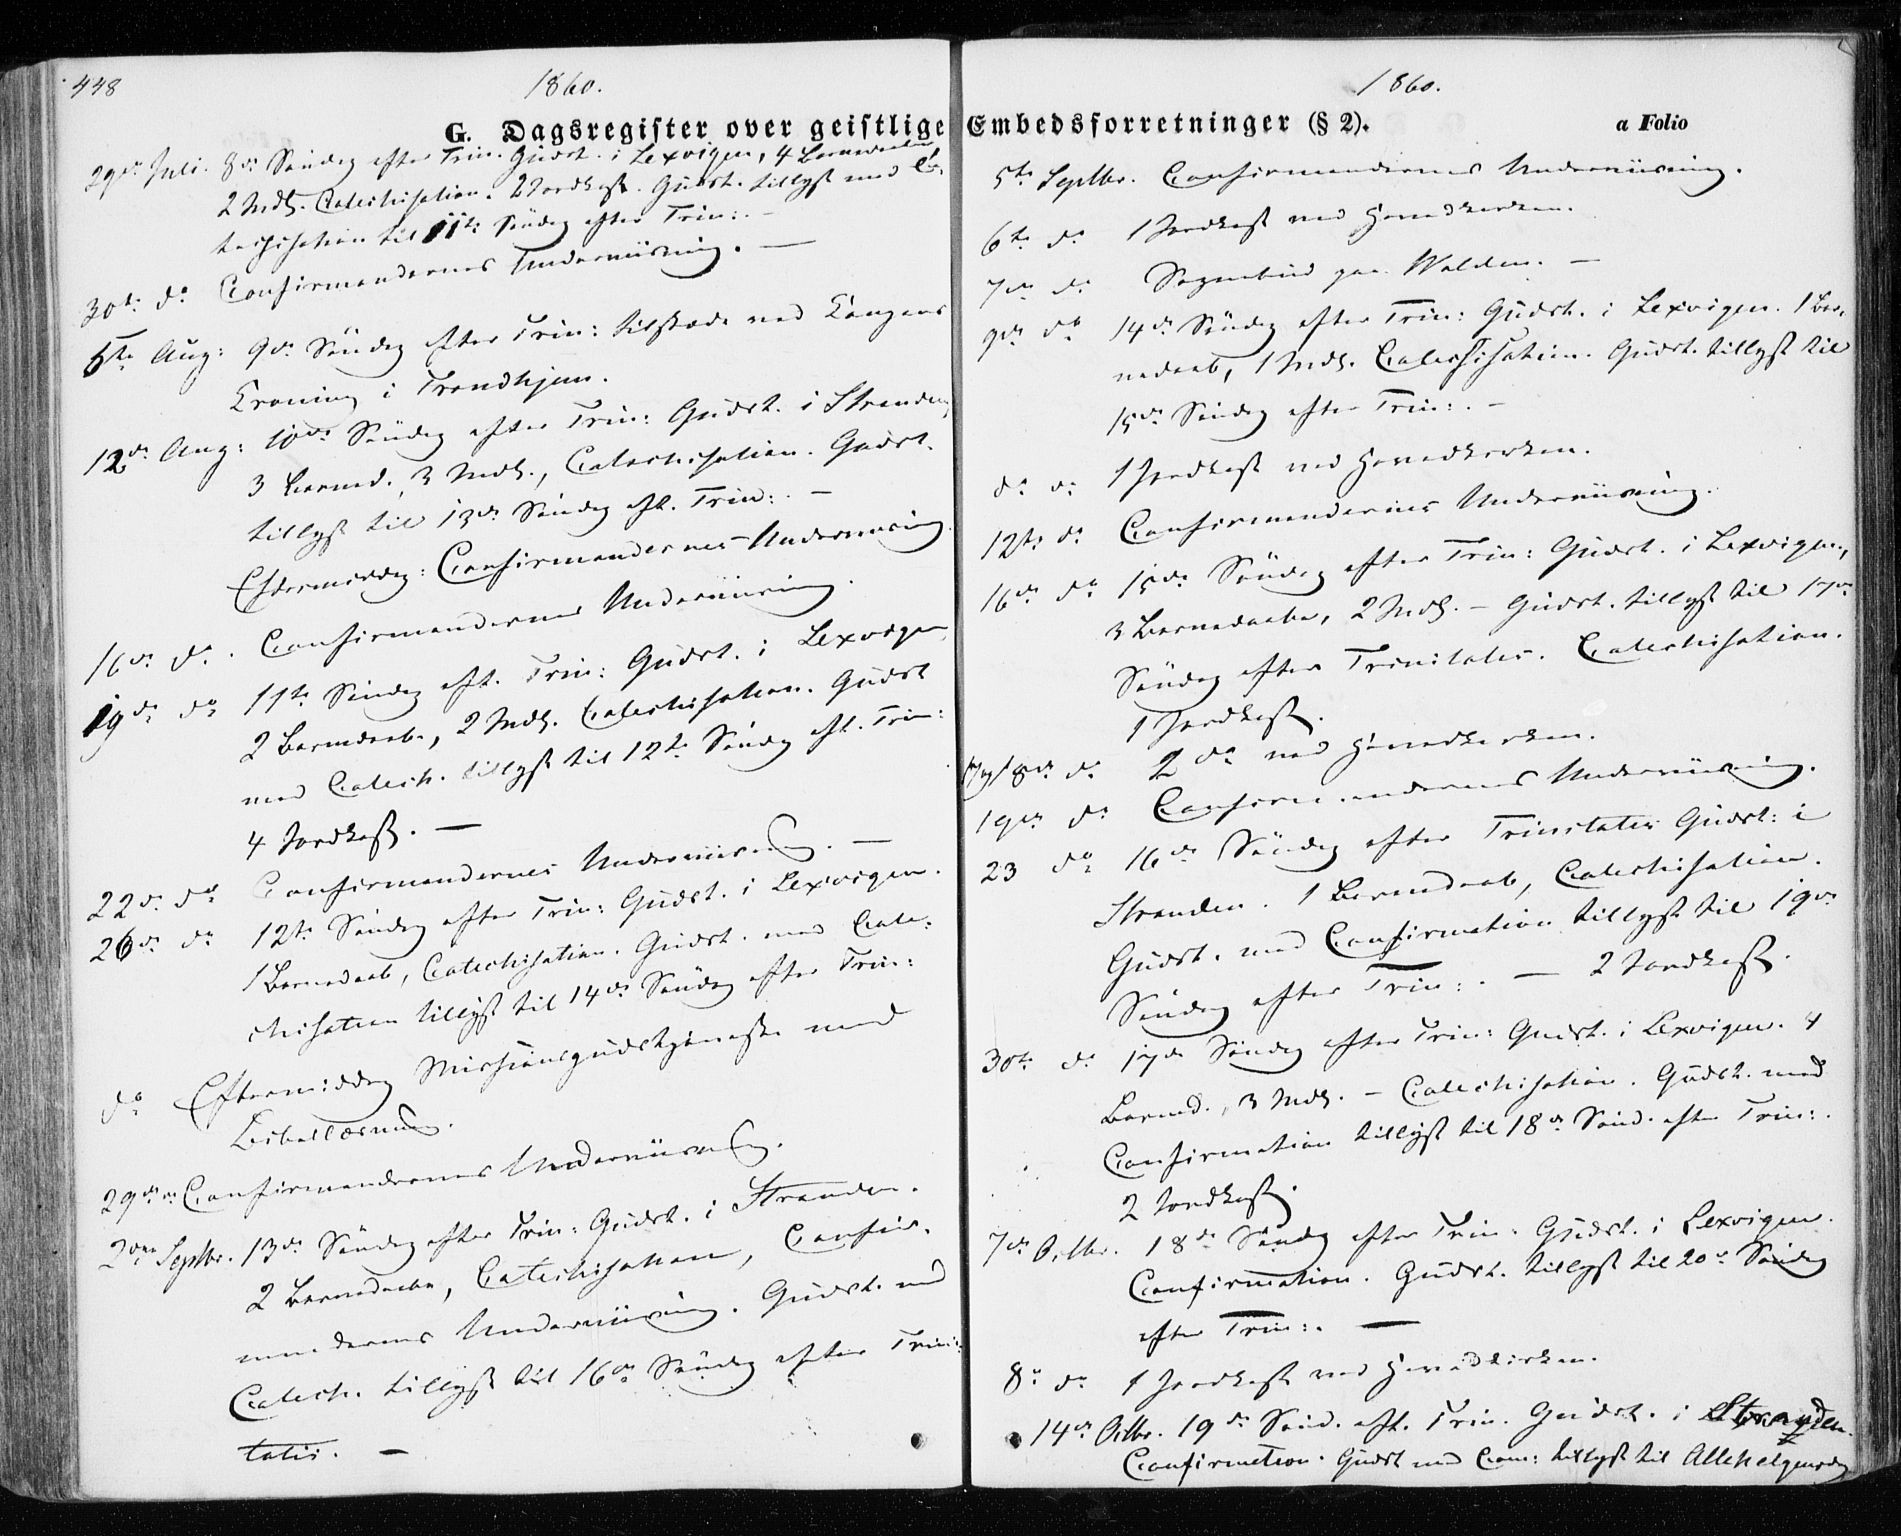 448
1860.
G. Dagsregister over geistlige
29de Juli. 8de Söndag efter Trin. Gudst. i Lexvigen, 4 Barnedaabe
2 Mdl. Catechisation. 2 Jordkast. Gudst. tillyst med Ca-
techisation til 11te Söndag efter Trin:. —
30te do Confirmandernes Underviisning. —
5te Aug: 9de Söndag efter Trin: tilstæde ved Kongens
Kroning i Trondhjem.
12de Aug: 10de Söndag efter Trin: Gudst. i Stranden,
3 Barned. 3 Mdl., Catechisation. Gudst.
tillyst til 13de Söndag eft. Trin:. —
Eftermiddag: Confirmandernes Underviisning.
16de do. Confirmandernes Underviisning.
19de do 11te Söndag eft. Trin: Gudst. i Lexvigen
2 Barnedaabe, 2 Mdl. Catechisation. Gudst
med Catech. tillyst til 12te Söndag eft. Trin:
4 Jordkast. —
22de do Confirmandernes Underviisning. —
26de do 12te Söndag efter Trin: Gudst. i Lexvigen.
1 Barnedaab, Catechisation. Gudst. med Cate-
chisation tillyst til 14de Söndag efter Trin:
do Eftermiddag Missionsgudstjeneste med
Bibellæsning.
29de do Confirmandernes Underviisning.
2den Septbr. 13de Söndag efter Trin: Gudst. i Stranden.
2 Barnedaabe, Catechisation, Confir-
mandernes Underviisning. Gudst. med
Catech. tillyst til 16de Söndag efter Trini-
tatis. —
1860.
Embedsforretninger (§ 2).
a Folio
5te Septbr. Confirmandernes Underviisning.
6te do 1 Jordkast ved Hovedkirken.
7de do Sognebud paa Walden. —
9de do 14de Söndag efter Trin: Gudst. i Lexvigen. 1 Bar-
nedaab, 1 Mdl. Catechisation. Gudst. tillyst til
15de Söndag efter Trin:. —
do do 1 Jordkast ved Hovedkirken.
12te do Confirmandernes Underviisning.
16de do 15de Söndag efter Trin: Gudst. i Lexvigen,
3 Barnedaabe, 2 Mdl. — Gudst. tillyst til 17de
Söndag efter Trinitatis. Catechisation.
1 Jordkast.
17de/18de do 2 do ved Hovedkirken.
19de do Confirmandernes Underviisning.
23 do 16de Söndag efter Trinitatis Gudst: i
Stranden. 1 Barnedaab, Catechisation.
Gudst. med Confirmation tillyst til 19de
Söndag efter Trin:. — 2 Jordkast.
30te do 17de Söndag efter Trin: Gudst. i Lexvigen. 4
Barned., 3 Mdl. — Catechisation. Gudst. med
Confirmation tillyst til 18de Sönd. efter Trin:.
2 Jordkast.
7de Octbr. 18de Söndag efter Trin: Gudst. i Lexvigen.
Confirmation. Gudst. tillyst til 20de Söndag
efter Trin:. —
8de do 1 Jordkast ved Hovedkirken.
14de Octbr. 19de Sönd. eft. Trin. Gudst. i Stranden.
Confirmation. Gudst med Com: tillyst til Allehelgensdag